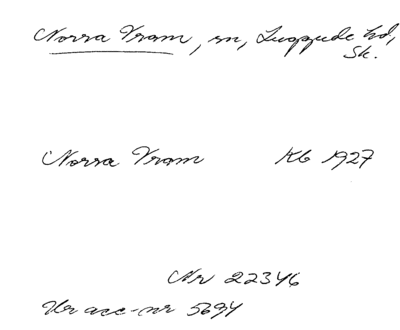 Norra Vram, sn, Luggude hd,
Sk.
Norra Vram Kb 1927
Nr 22346
Ur acc-nr 5694